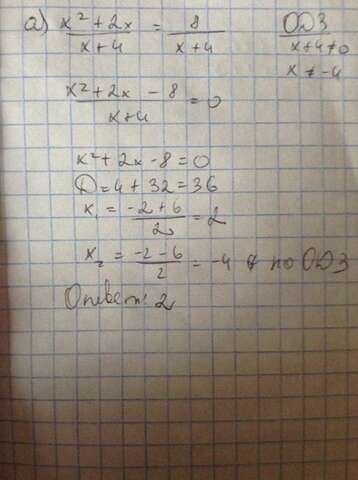 а) x² + 2x / x+4 = 8 / x+4
ОДЗ
x+4≠0
x≠-4
x²+2x-8 / x+4 = 0
x²+2x-8=0
D=4+32=36
x₁ = -2+6 / 2 = 2
x₂ = -2-6 / 2 = -4 ∉ по ОДЗ
Ответ: 2